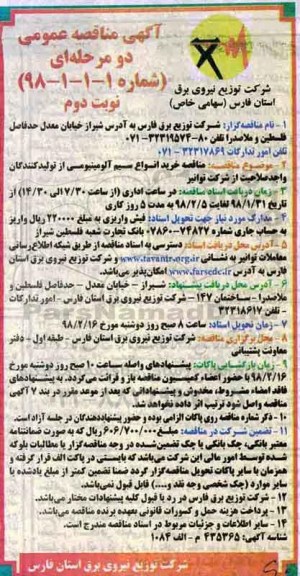 آگهی مناقصه عمومی
دو مرحله‌ای
(شماره ۱-۱-۱-۹۸)
نوبت دوم
شرکت توزیع نیروی برق
استان فارس (سهامی خاص)
۱ - نام مناقصه‌گزار: شرکت توزیع برق فارس به آدرس شیراز خیابان معدل حدفاصل
فلسطین و ملاصدرا تلفن ۸۰-۳۲۳۱۹۵۷۴-۰۷۱
تلفن امور تدارکات ۳۲۳۱۷۸۶۹-۰۷۱
۲ - موضوع مناقصه: مناقصه خرید انواع سیم آلومینیومی از تولیدکنندگان
واجدصلاحیت از شرکت توانیر
۳ - زمان دریافت اسناد مناقصه: در ساعت اداری (از ساعت ۷/۳۰ الی ۱۴/۳۰) از
تاریخ ۹۸/۱/۳۱ لغایت ۹۸/۲/۵ به مدت ۵ روز کاری
۴ - مدارک مورد نیاز جهت تحویل اسناد: فیش واریزی به مبلغ ۲۲۰۰۰۰ ریال واریز
به حساب جاری شماره ۰۷۸۶۰-۷۴۸۲۷ بانک تجارت شعبه فلسطین شیراز
۵ - آدرس محل دریافت اسناد: دسترسی به اسناد مناقصه از طریق شبکه اطلاع‌رسانی
معاملات توانیر به نشانی www.tavanir.org.ir و شرکت توزیع نیروی برق استان
فارس به آدرس www.farsedc.ir امکان‌پذیر می‌باشد.
۶ - آدرس محل دریافت پیشنهاد: شیراز - خیابان معدل - حدفاصل فلسطین و
ملاصدرا - ساختمان ۱۴۷ - شرکت توزیع نیروی برق استان فارس - امور تدارکات
تلفن ۳۲۳۱۸۶۱۷
۷ - زمان تحویل اسناد: ساعت ۸ صبح روز دوشنبه مورخ ۹۸/۲/۱۶
۸ - محل برگزاری مناقصه: شرکت توزیع نیروی برق استان فارس - طبقه اول - دفتر
معاونت پشتیبانی
۹ - زمان بازگشایی پاکات: پیشنهادهای واصله ساعت ۱۰ صبح روز دوشنبه مورخ
۹۸/۲/۱۶ با حضور اعضاء کمیسیون مناقصه باز و قرائت می‌گردد. به پیشنهادهای
فاقد امضاء مشروط، مخدوش و پیشنهاداتی که بعد از موعد مقرر در بند ۷ آگهی
مناقصه واصل شود ترتیب اثر داده نخواهد شد.
۱۰ - ذکر شماره مناقصه روی پاکات الزامی بوده و حضور پیشنهاددهندگان در جلسه آزاد است.
۱۱ - تضمین شرکت در مناقصه: مبلغ ۶۰۶/۷۰۰/۰۰۰ ریال که به صورت ضمانتنامه
معتبر بانکی، چک بانکی یا چک تضمین‌شده در وجه مناقصه‌گزار یا مطالبات بلوکه
شده توسط امور مالی این شرکت می‌باشد که بایستی در پاکت الف قرار گرفته و
همزمان با سایر پاکات تحویل مناقصه‌گزار گردد ضمنا تضمین کمتر از مبلغ یادشده یا
سایر موارد (چک شخصی وجه نقد و....) قابل قبول نمی‌باشد.
۱۲ - شرکت توزیع برق فارس در رد یا قبول کلیه پیشنهادات مختار می‌باشد.
۱۳ - پرداخت هزینه حمل و کسورات قانونی بعهده برنده مناقصه می‌باشد.
۱۴ - سایر اطلاعات و جزئیات مربوط در اسناد مناقصه مندرج است.
شناسه آگهی: ۴۳۵۳۶۵ م - الف ۱۰۸۴
شرکت توزیع نیروی برق استان فارس